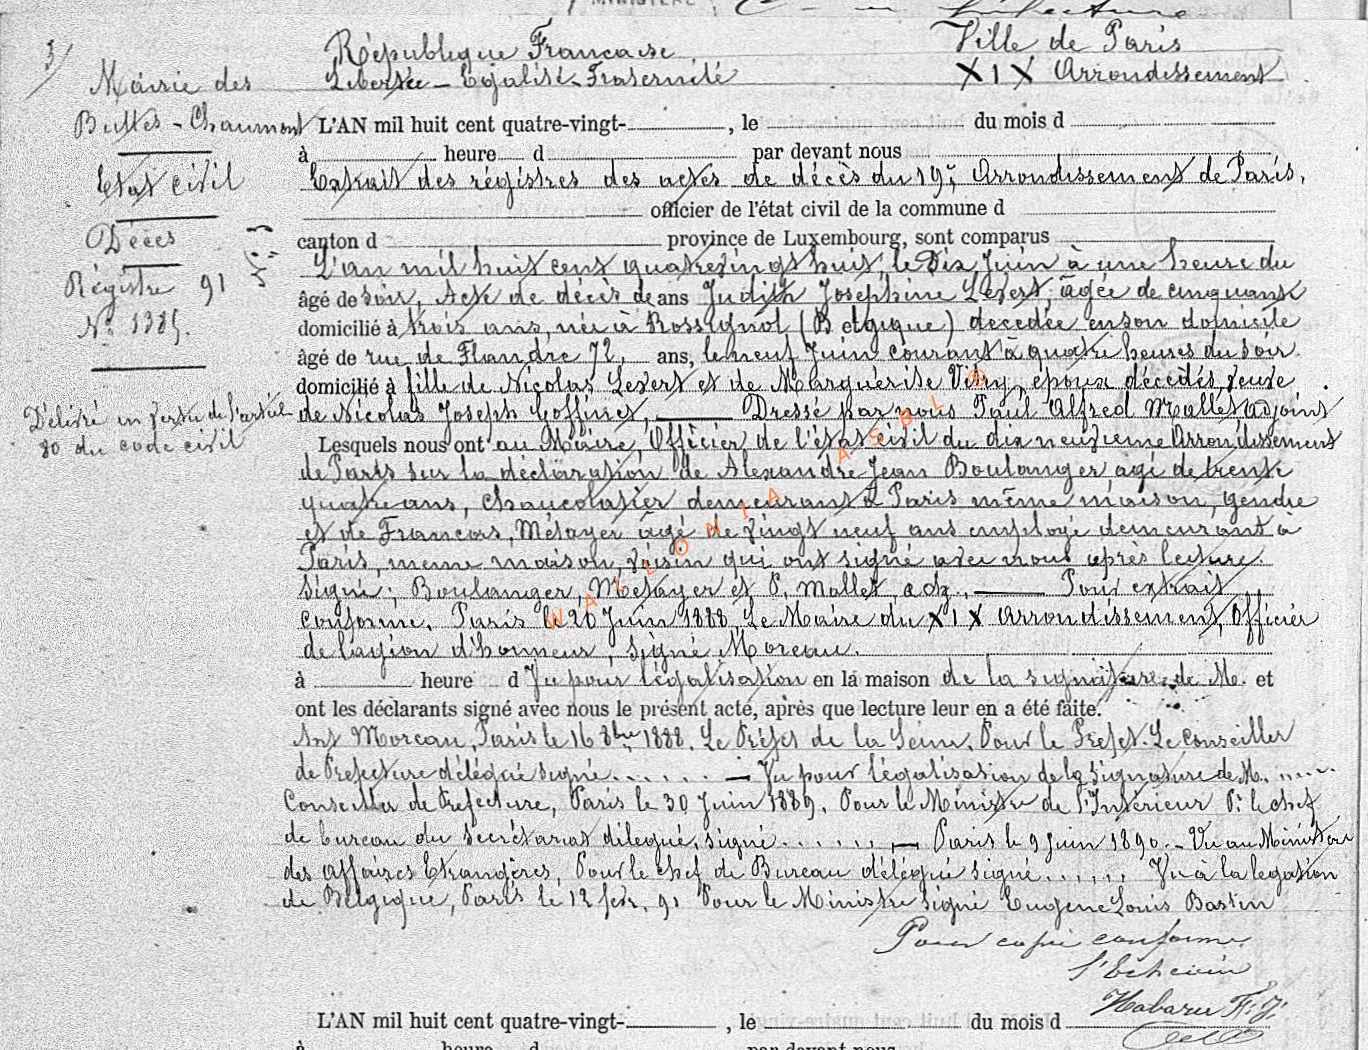 3/
République Francaise
Ville de Paris
Mairie des
Libertée - Egalité - Fraternité
XIX Arrondissement
Buttes - Chaumont
L'AN mil huit cent quatre-vingt- , le du mois d
à heure d par devant nous
Etat civil
Extrait des régistres des actes de décès du 19e Arrondissement de Paris.
officier de l'état civil de la commune d
Décès
canton d province de Luxembourg, sont comparus
Régistre 91
L'an mil huit cent quatrevingt huit, le Dix Juin à une heure du
âgé de soir, Acte de décès de ans Judith Josephine Levert, agée de cinquante
Nº 1385.
domicilié à trois ans, née à Rossignol (Belgique) decedée en son domicile
âgé de rue de Flandre 72, ans, le neuf Juin courant à quatre heures du soir
domicilié à fille de Nicolas Levert et de Marguérite Vitry, époux décédés, veuve
Délivré en vertu de l'article
de Nicolas Joseph Goffinet, Dressé par nous Paul Alfred Mallet adjoint
80 du code civil
Lesquels nous ont au Maire, Officier de l'état civil du dix neuvieme Arrondissement
de Paris sur la déclaration de Alexandre Jean Boulanger agé de trente
quatre ans, chaucolatier demeurant à Paris même maison, gendre
et de Francois Métayer âgé de vingt neuf ans employé demeurant a
Paris, meme maison, voisin qui ont signé avec nous après lecture.
Signé: Boulanger, Métayer et P. Mallet, adj. Pour extrait
conforme. Paris le 26 Juin 1888. Le Maire du XIX Arrondissement, Officier
de légion d'honneur, signé Moreau.
à heure d Vu pour légalisation en la maison de la signature de M. et
ont les déclarants signé avec nous le présent acte, après que lecture leur en a été faite.
Ant Moreau, Paris le 16 8bre 1888. Le Préfet de la Seine. Pour le Prefet. Le Conseiller
de Prefecture délégué signé...... Vu pour légalisation de la signature de M. .....
Conseiller de Prefecture, Paris le 30 Juin 1889. Pour le Ministre de l'Intérieur Pr le chef
de bureau du secrétariat délegué, signé...... Paris le 9 Juin 1890. - Vu au Ministère
des affaires Etrangères, Pour le chef de Bureau délégué signé...... Vu à la legation
de Belgique, Paris le 12 fév. 91 Pour le Ministre signé Eugene Louis Bastin
Pour copie conforme
l'Echevin
Habaru F. J.
WALLONIA ASBL ®
L'AN mil huit cent quatre-vingt- , le du mois d
à heure d par devant nous